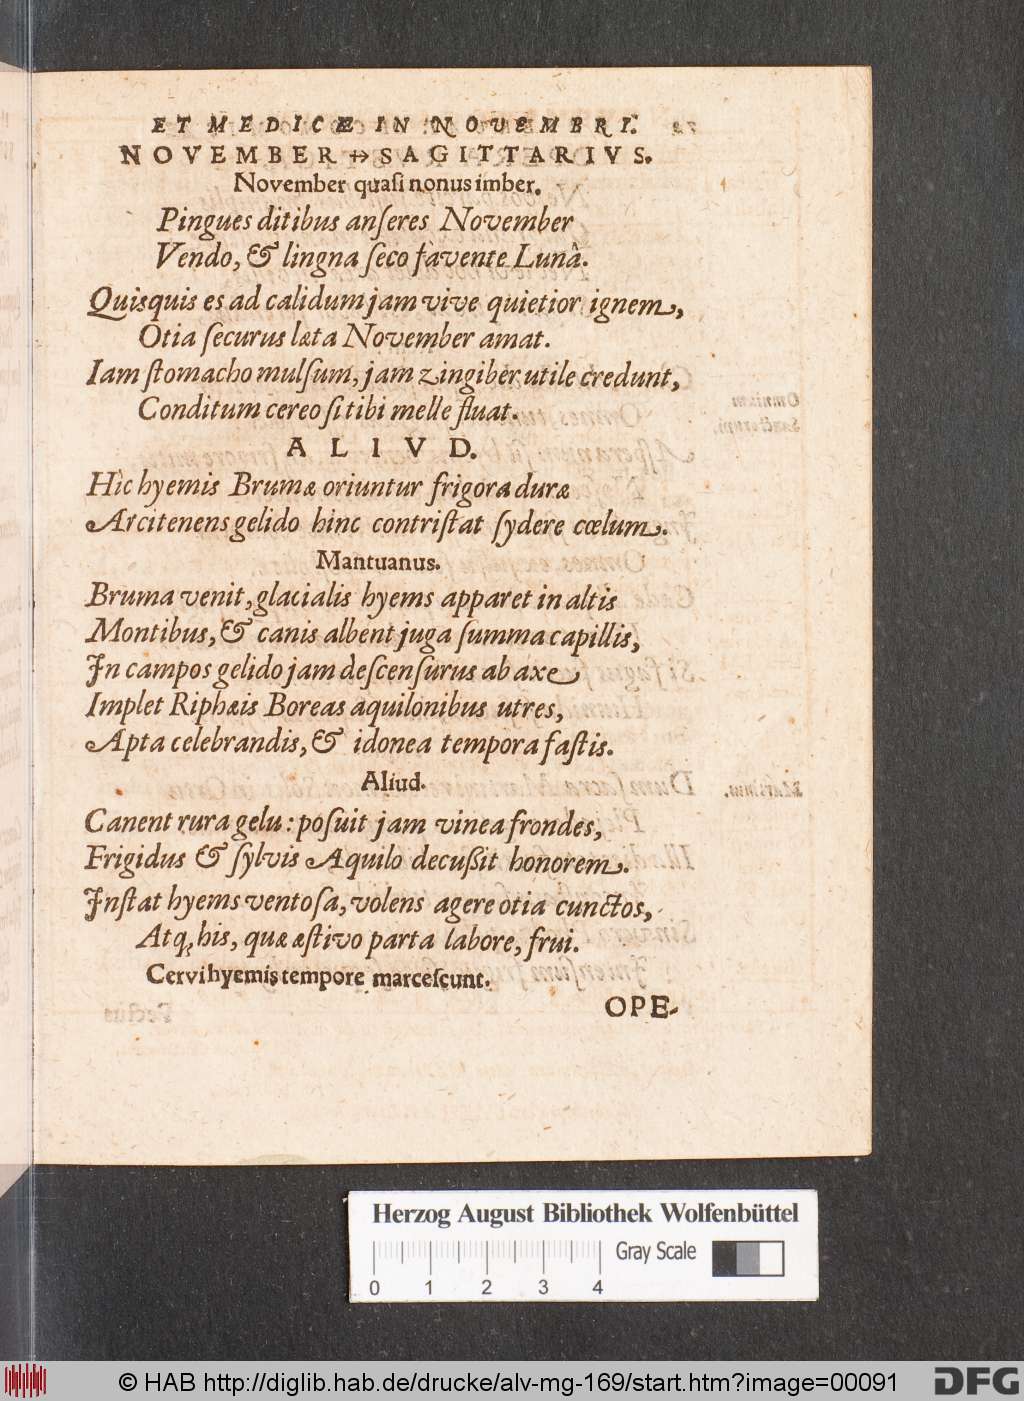 ET MEDICÆ IN NOVEMBRI.
NOVEMBER ↔ SAGITTARIVS.
November quaſi nonus imber.
Pingues ditibus anſeres November
Vendo, & lingna ſeco favente Lunâ.
Quisquis es ad calidum jam vive quietior ignem,
Otia ſecurus læta November amat.
Iam ſtomacho mulſum, jam zingiber utile credunt,
Conditum cereo ſi tibi melle fluat.
ALIVD.
Hìc hyemis Brumæ oriuntur frigora duræ
Arcitenens gelido hinc contriſtat ſydere cœlum.
Mantuanus.
Bruma venit, glacialis hyems apparet in altis
Montibus, & canis albent juga ſumma capillis,
In campos gelido jam deſcenſurus ab axe
Implet Riphæis Boreas aquilonibus utres,
Apta celebrandis, & idonea tempora faſtis.
Aliud.
Canent rura gelu: poſuit jam vinea frondes,
Frigidus & ſylvis Aquilo decußit honorem.
Inſtat hyems ventoſa, volens agere otia cunctos,
Atq; his, quæ æſtivo parta labore, frui.
Cervi hyemis tempore marceſcunt.
OPE-
Herzog August Bibliothek Wolfenbüttel
Gray Scale
0 1 2 3 4
© HAB http://diglib.hab.de/drucke/alv-mg-169/start.htm?image=00091
DFG